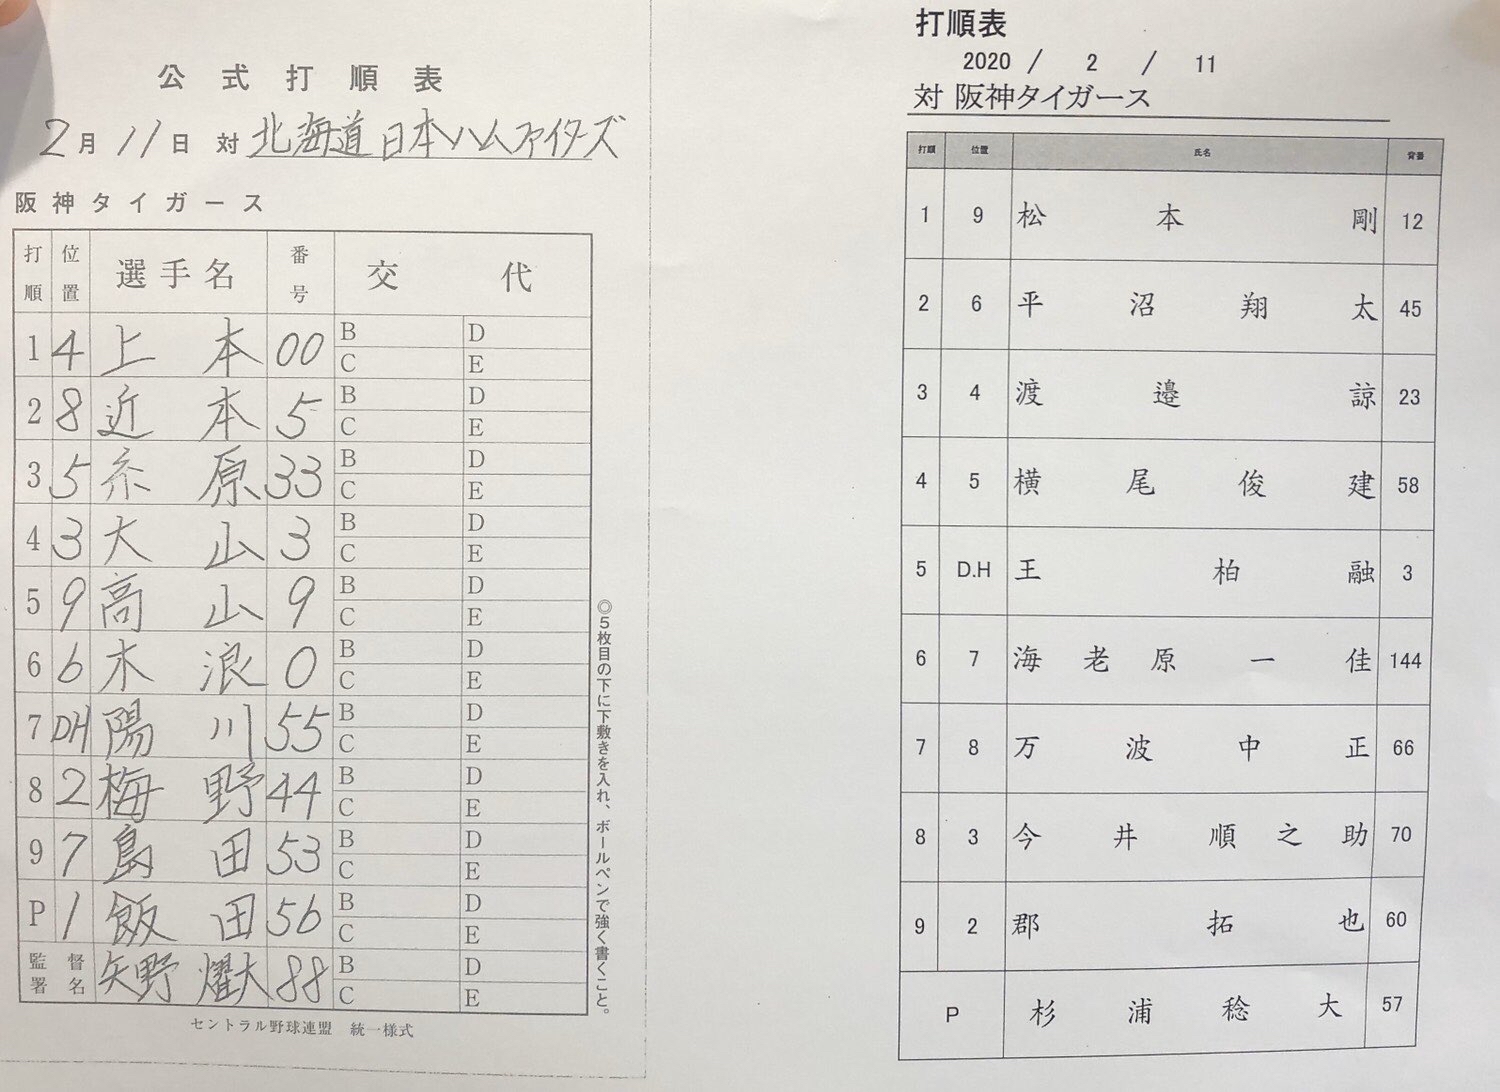 公式打順表
2月11日 対 北海道日本ハムファイターズ
阪神タイガース
打順 位置 選手名 番号 交代
1 4 上本 00 B D C E
2 8 近本 5 B D C E
3 5 糸原 33 B D C E
4 3 大山 3 B D C E
5 9 高山 9 B D C E
6 6 木浪 0 B D C E
7 DH 陽川 55 B D C E
8 2 梅野 44 B D C E
9 7 島田 53 B D C E
P 1 飯田 56 B D C E
監督署名 矢野燿大 88 B D C E
セントラル野球連盟 統一様式
◎5枚目の下に下敷きを入れ、ボールペンで強く書くこと。
打順表
2020 / 2 / 11
対 阪神タイガース
打順 位置 氏名 背番
1 9 松本剛 12
2 6 平沼翔太 45
3 4 渡邉諒 23
4 5 横尾俊建 58
5 D.H 王柏融 3
6 7 海老原一佳 144
7 8 万波中正 66
8 3 今井順之助 70
9 2 郡拓也 60
P 杉浦稔大 57